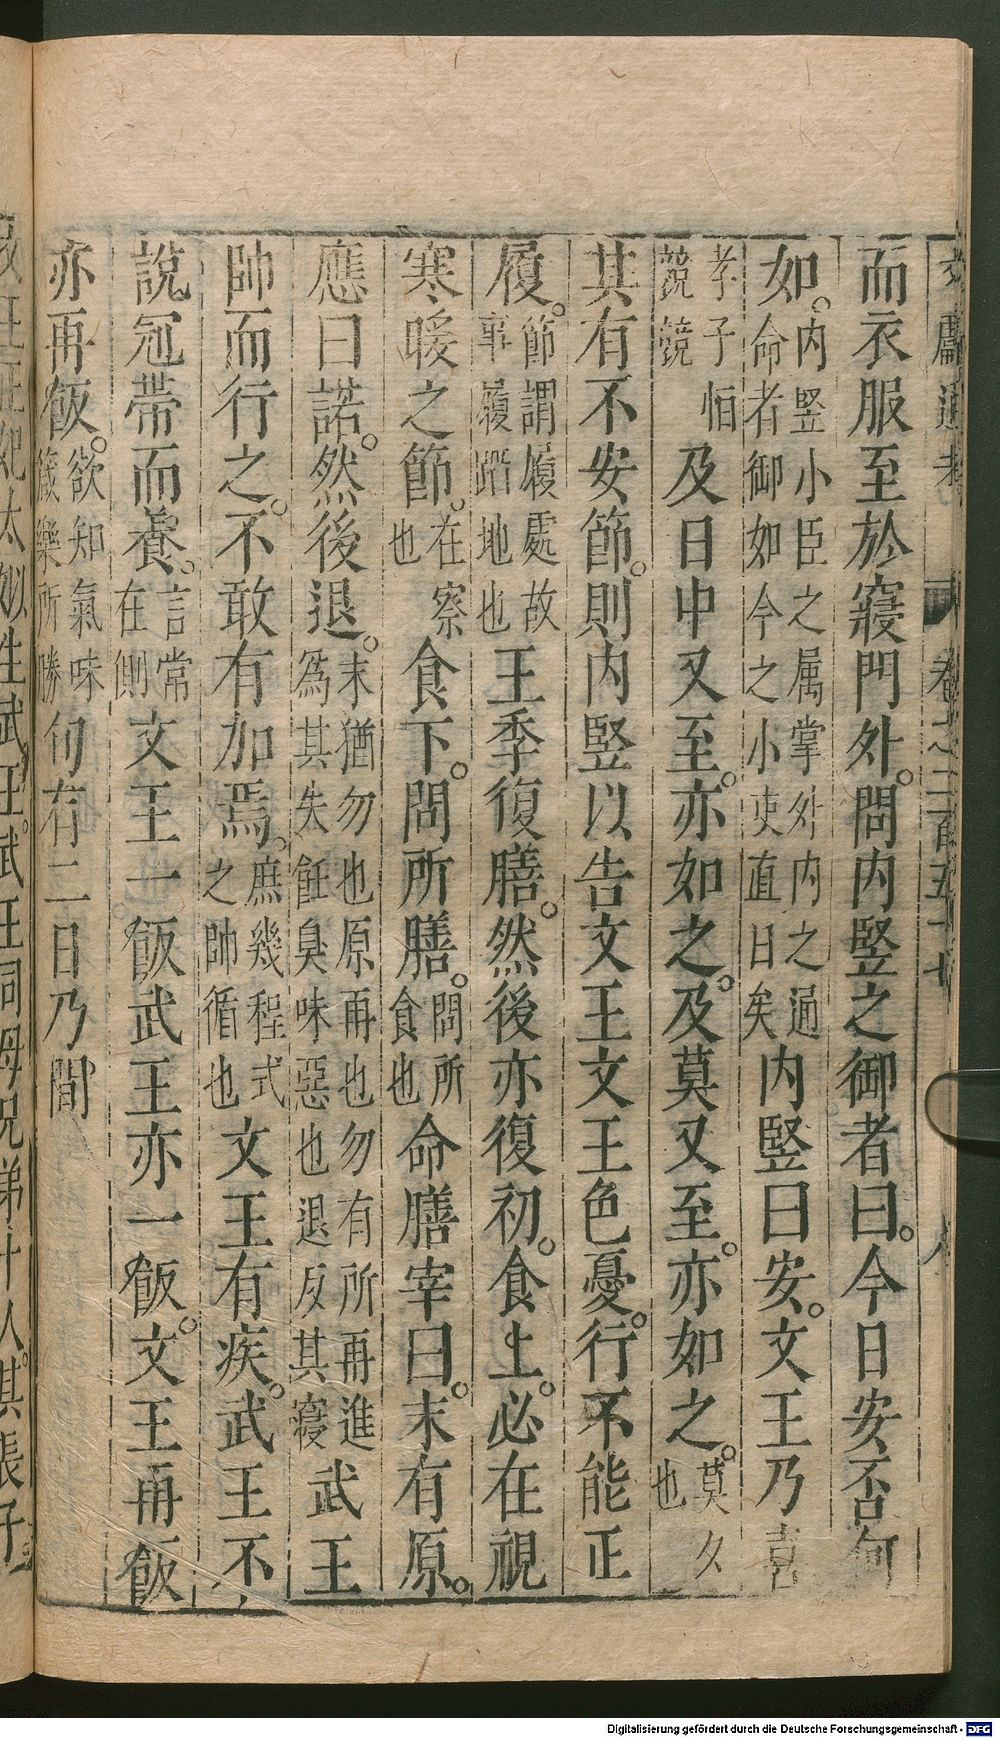 文獻通考　卷之二百五十七　八
而衣服至於寢門外。問內豎之御者曰。今日安否何
如。內豎小臣之属掌外内之通命者御如今之小吏直日矣內豎曰安。文王乃喜
孝子恒兢兢及日中又至。亦如之。及莫又至。亦如之。莫夕也
其有不安節。則内豎以告文王文王色憂。行不能正
履。節謂履處故事履蹈地也王季復膳。然後亦復初。食上。必在視
寒暖之節。在察也食下。問所膳。問所食也命膳宰曰。末有原。
應曰諾。然後退。末猶勿也原再也勿有所再進爲其失飪臭味惡也退反其寢武王
帥而行之。不敢有加焉。庶幾程式之帥循也文王有疾。武王不
說冠帶而養。言常在側文王一飯武王亦一飯。文王再飯
亦再飯。欲知氣味箴藥所勝旬有二日乃間
王正妃太姒生武王。武王同母兄弟十人。其長子
Digitalisierung gefördert durch die Deutsche Forschungsgemeinschaft - DFG